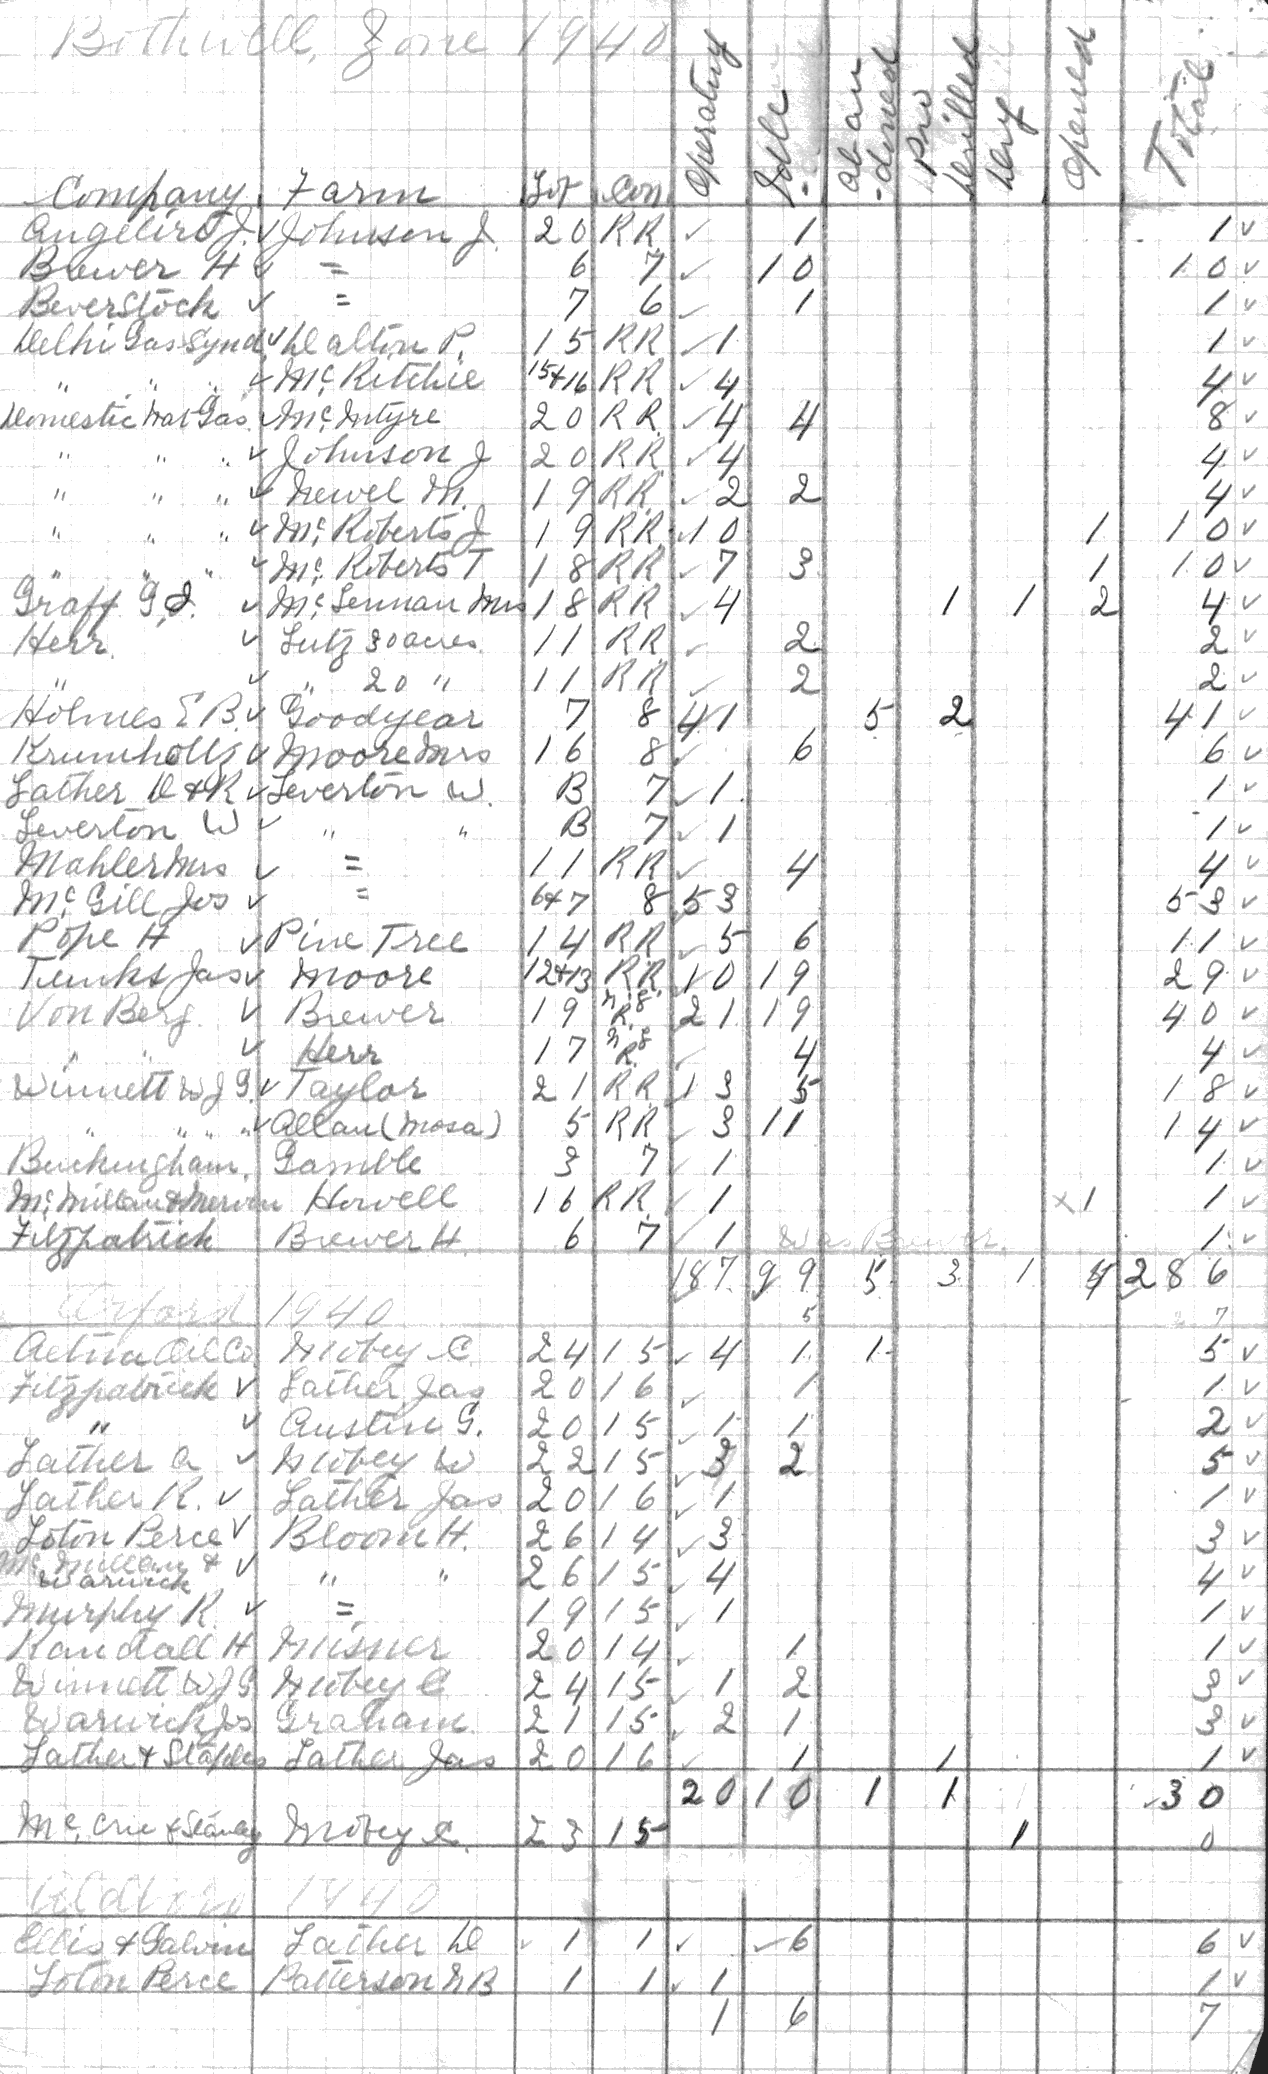 Bothwell, Zone 1940
Company Farm Lot Con Operating Idle aban-doned pro Drilled Dry opened Total
Angeliro J. ✓ Johnson J. 20 RR ✓ 1 1 ✓
Brewer H ✓ = 6 7 ✓ 10 10 ✓
Beverstock ✓ = 7 6 ✓ 1 1 ✓
Delhi Gas Synd. ✓ Dalton P. 15 RR ✓ 1 1 ✓
" " " ✓ Mc Ritchie 15+16 RR ✓ 4 4 ✓
Domestic Nat Gas ✓ McIntyre 20 RR ✓ 4 4 8 ✓
" " " ✓ Johnson J 20 RR ✓ 4 4 ✓
" " " ✓ Newel M. 19 RR ✓ 2 2 4 ✓
" " " ✓ Mc Roberts J 19 RR ✓ 10 1 10 ✓
" " " ✓ Mc Roberts T 18 RR ✓ 7 3 1 10 ✓
Graff G.J. ✓ Mc Lennan Mrs 18 RR ✓ 4 1 1 2 4 ✓
Herr. ✓ Lutz 30 acres 11 RR ✓ 2 2 ✓
" ✓ " 20 " 11 RR ✓ 2 2 ✓
Holmes E B. ✓ Goodyear 7 8 41 5 2 41 ✓
Krumholtz ✓ Moore Mrs 16 8 ✓ 6 6 ✓
Lather D & R ✓ Leverton W. B 7 ✓ 1 1 ✓
Leverton W ✓ " " B 7 ✓ 1 1 ✓
Mahler Mrs ✓ = 11 RR ✓ 4 4 ✓
Mc Gill Jos ✓ = 6+7 8 53 53 ✓
Pope H ✓ Pine Tree 14 RR ✓ 5 6 11 ✓
Tunks Jas ✓ Moore 12+13 RR 10 19 29 ✓
Von Berg ✓ Brewer 19 N.8 R. 21 19 40 ✓
" " ✓ Herr 17 N 8 R. ✓ 4 4 ✓
Winnett W J G. ✓ Taylor 21 RR 13 5 18 ✓
" " " " ✓ Allan (Mosa) 5 RR ✓ 3 11 14 ✓
Buckingham. Gamble 3 7 ✓ 1 1 ✓
Mc Millan & Mervin Howell 16 RR ✓ 1 x1 1 ✓
Fitzpatrick Brewer H. 6 7 ✓ 1 Was Brewer. 1 ✓
187 99 5 3 1 4 286
Orford 1940 5 7
Aetna Oil Co Mobey C. 24 15 ✓ 4 1 1 5 ✓
Fitzpatrick ✓ Lather Jas 20 16 ✓ 1 1 ✓
" ✓ Austin G. 20 15 ✓ 1 1 2 ✓
Lather A ✓ Mobey W 22 15 ✓ 3 2 5 ✓
Lather R. ✓ Lather Jas 20 16 ✓ 1 1 ✓
Loton Perce ✓ Bloom H. 26 14 ✓ 3 3 ✓
Mc Millan & ✓
Warwick " " 26 15 ✓ 4 4 ✓
Murphy R. ✓ = 19 15 ✓ 1 1 ✓
Randall H Misner 20 14 ✓ 1 1 ✓
Winnett W J G Mobey C 24 15 ✓ 1 2 3 ✓
Warwick Jos Graham 21 15 ✓ 2 1 3 ✓
Lather & Staples Lather Jas 20 16 ✓ 1 1 1 ✓
20 10 1 1 ✓ 30
Mc Crie & Mobey C. 23 15 1 0
Aldboro 1940
Ellis & Galvin Lather D ✓ 1 1 ✓ ✓ 6 6 ✓
Loton Perce Patterson N B 1 1 ✓ 1 1 ✓
1 6 7